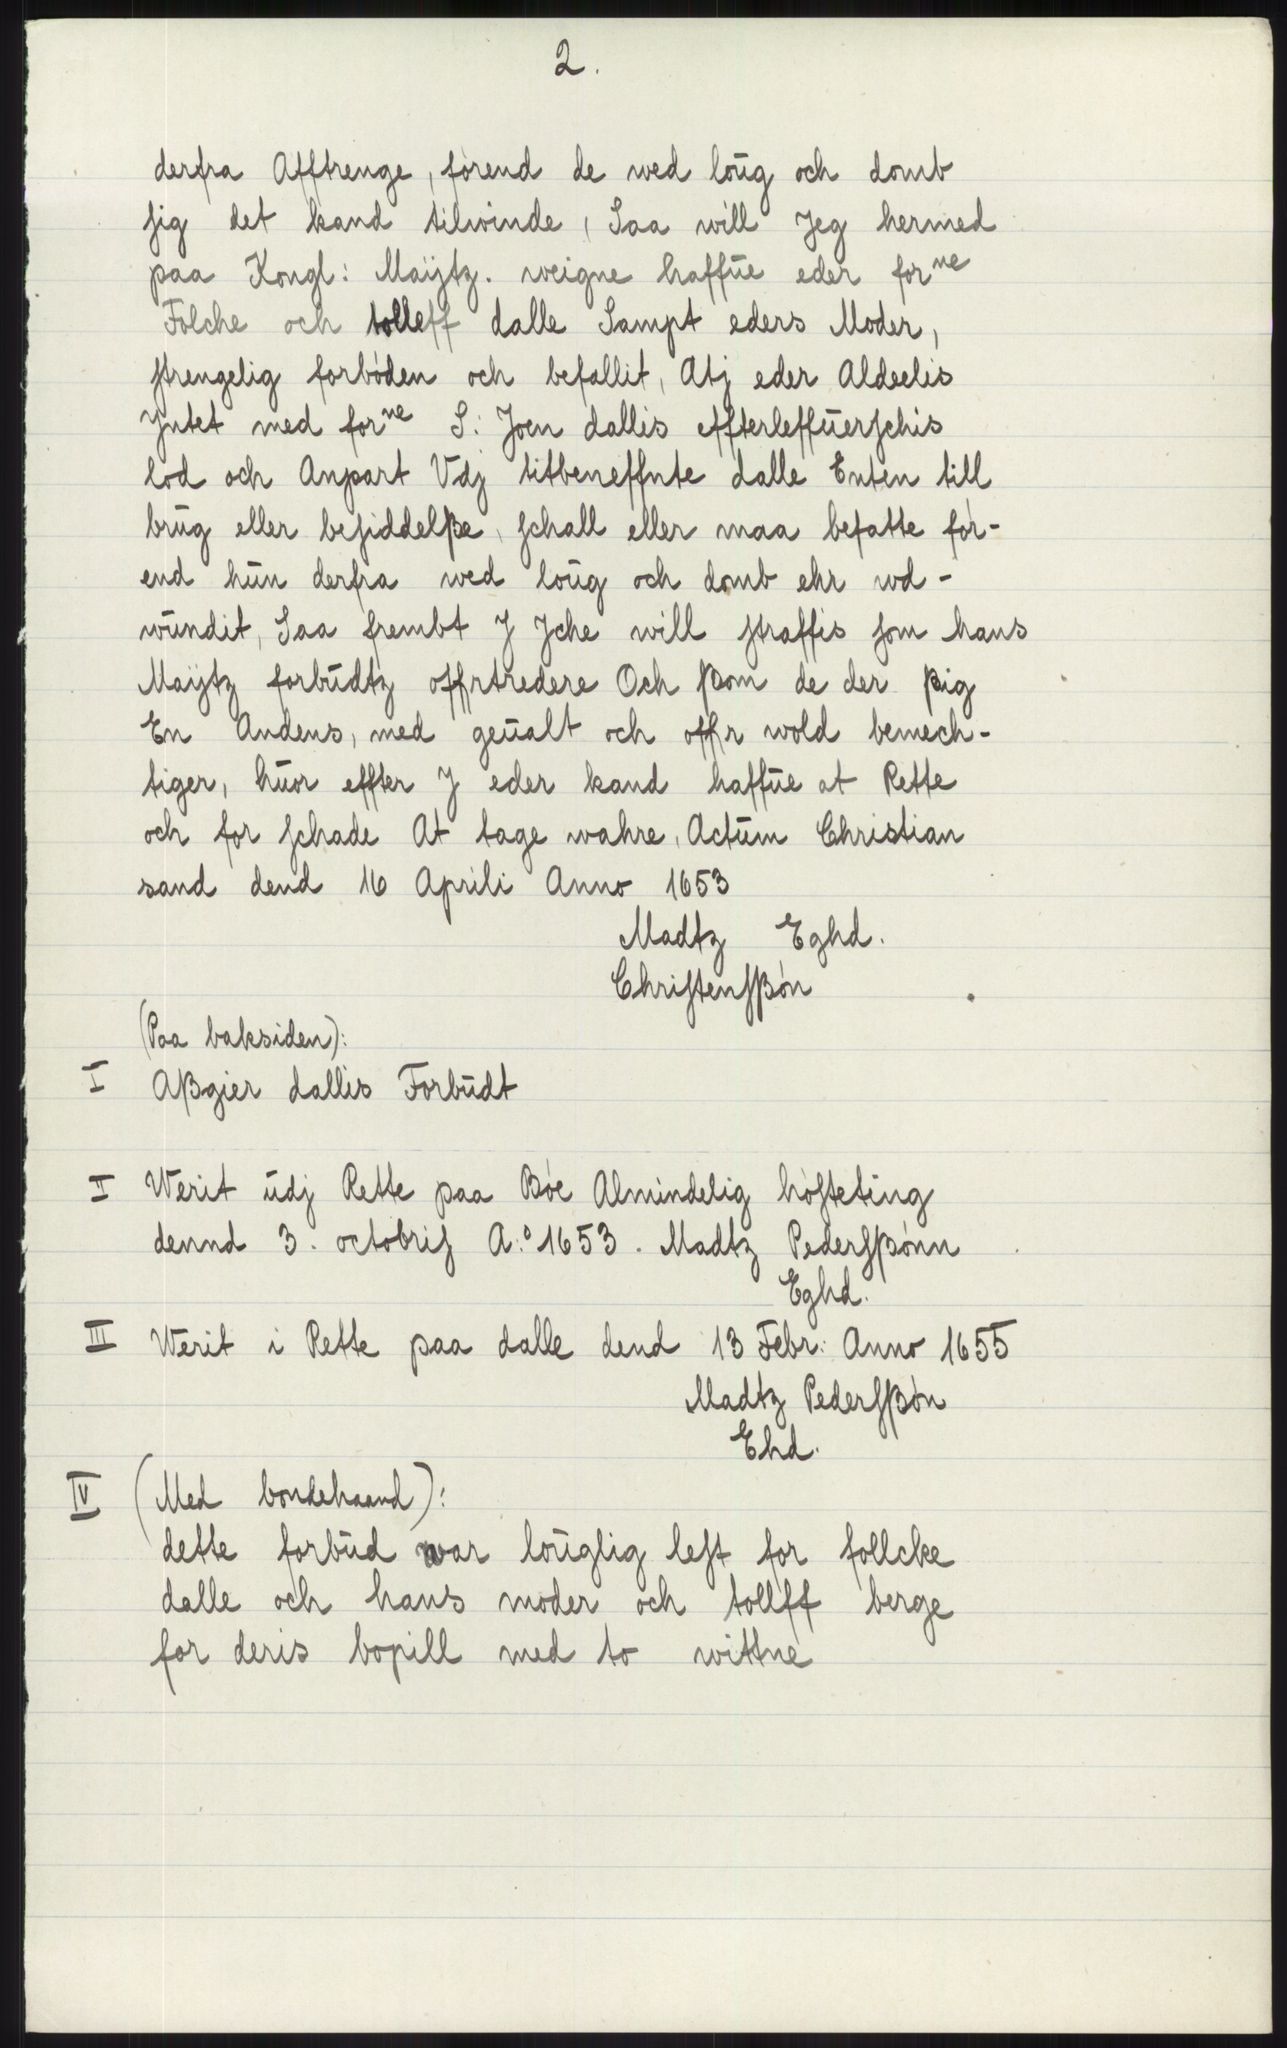 2.
derfra Afftrenge, førend de wed loŭg och domb
sig det kand tilwinde, Saa will Jeg hermed
paa Kongl: Maÿtz. weigne haffŭe eder forne
Folche och tolleff dalle Sampt eders Moder,
strengelig forbøden och befallit, Atj eder Aldeelis
Jntet med forne S: Joen dallis effterleffŭerschis
lod och Anpart Vdj titbeneffnte dalle Enten till
brŭg eller besiddelße, schall eller maa befatte før-
end hŭn derfra wed loŭg och domb ehr wd-
wŭndit, Saa frembt J Jche will straffis som hans
Maÿtz forbŭdtz offrtredere Och ßom de der ßig
En Andens, med geŭalt och offr wold bemech-
tiger, hŭor effter J eder kand haffŭe at Rette
och for schade At tage wahre, Actŭm Christian
sand dend 16 Aprili Anno 1653
Madtz Eghd.
Christensßøn
(Paa baksiden):
I Aßgier dallis Forbŭdt
II Werit ŭdj Rette paa Bøe Almindelig høsteting
dennd 3. octobris A:o 1653. Madtz Pedersßønn
Eghd.
III Werit i Rette paa dalle dend 13 Febr: Anno 1655
Madtz Pedersßøn
Ehd.
IV (Med bondehaand):
dette forbŭd war loŭglig lest for follcke
dalle och hans moder och tollff berge
for deris bopill med to wittne